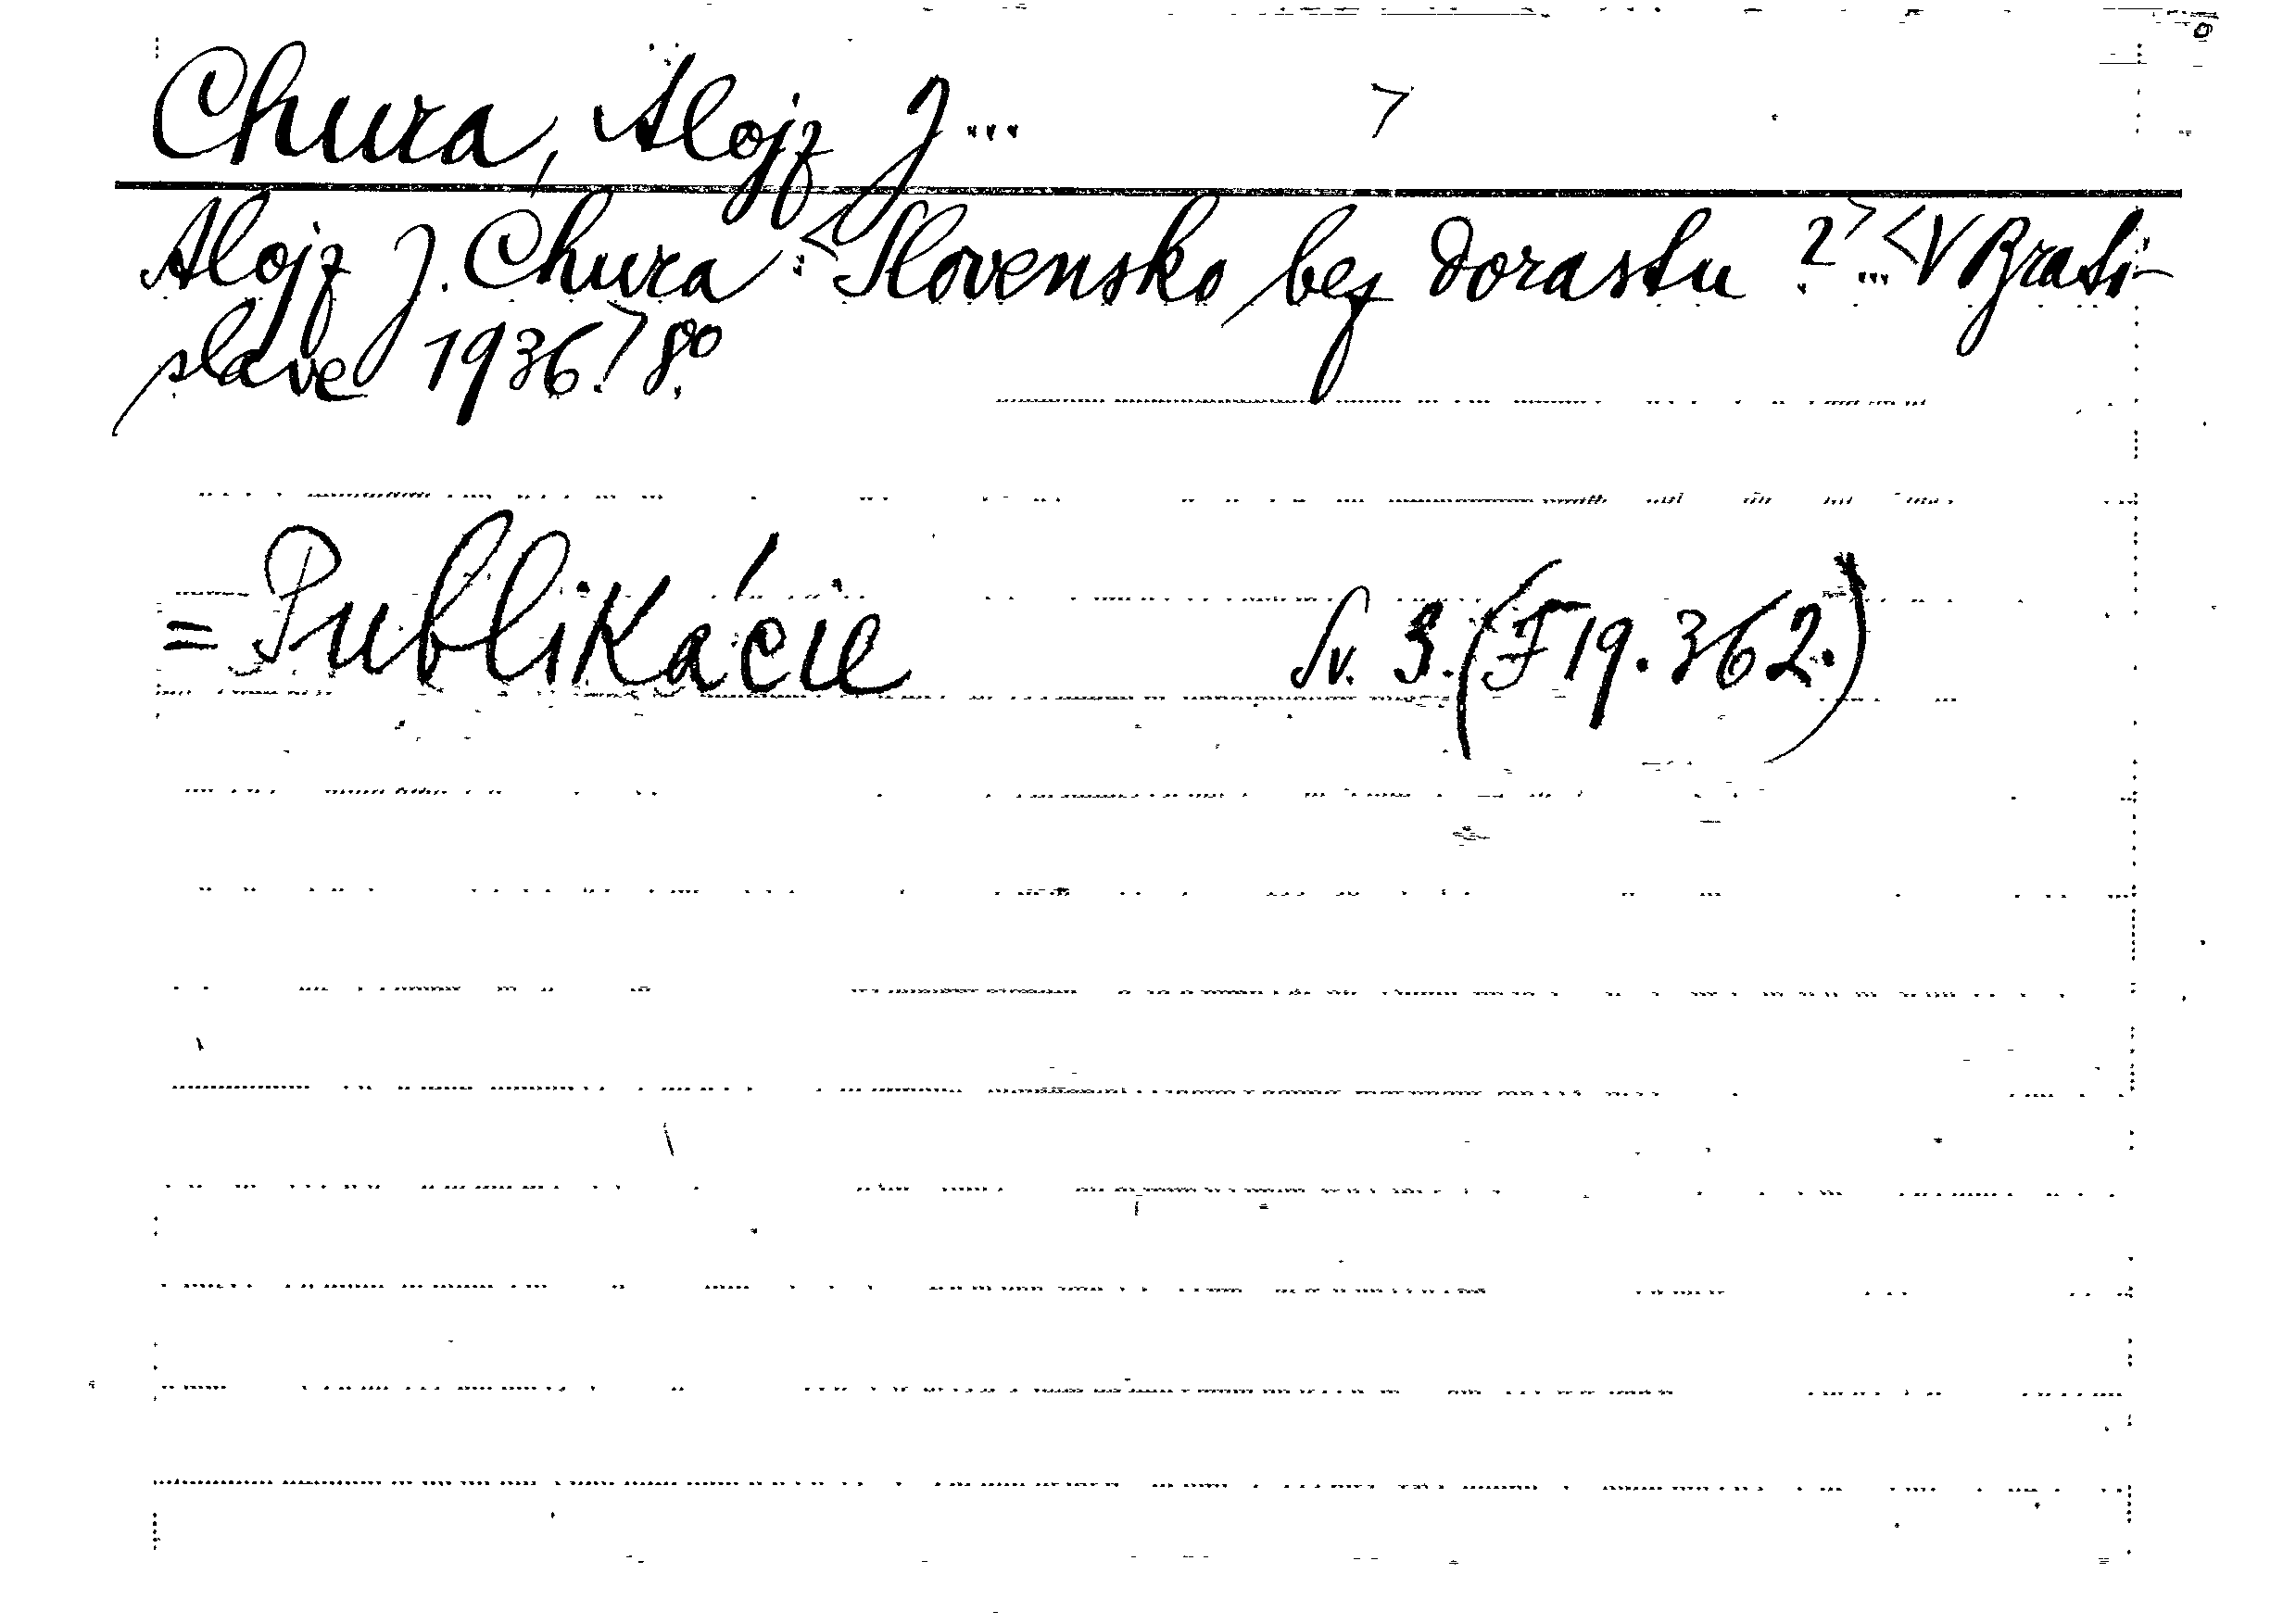 Chura, Alojz J...
Alojz J. Chura: <Slovensko bez dorastu?> ... <V Brati-
slave 1936.> 8°.
= Publikácie Sv. 3. (F 19.362.)